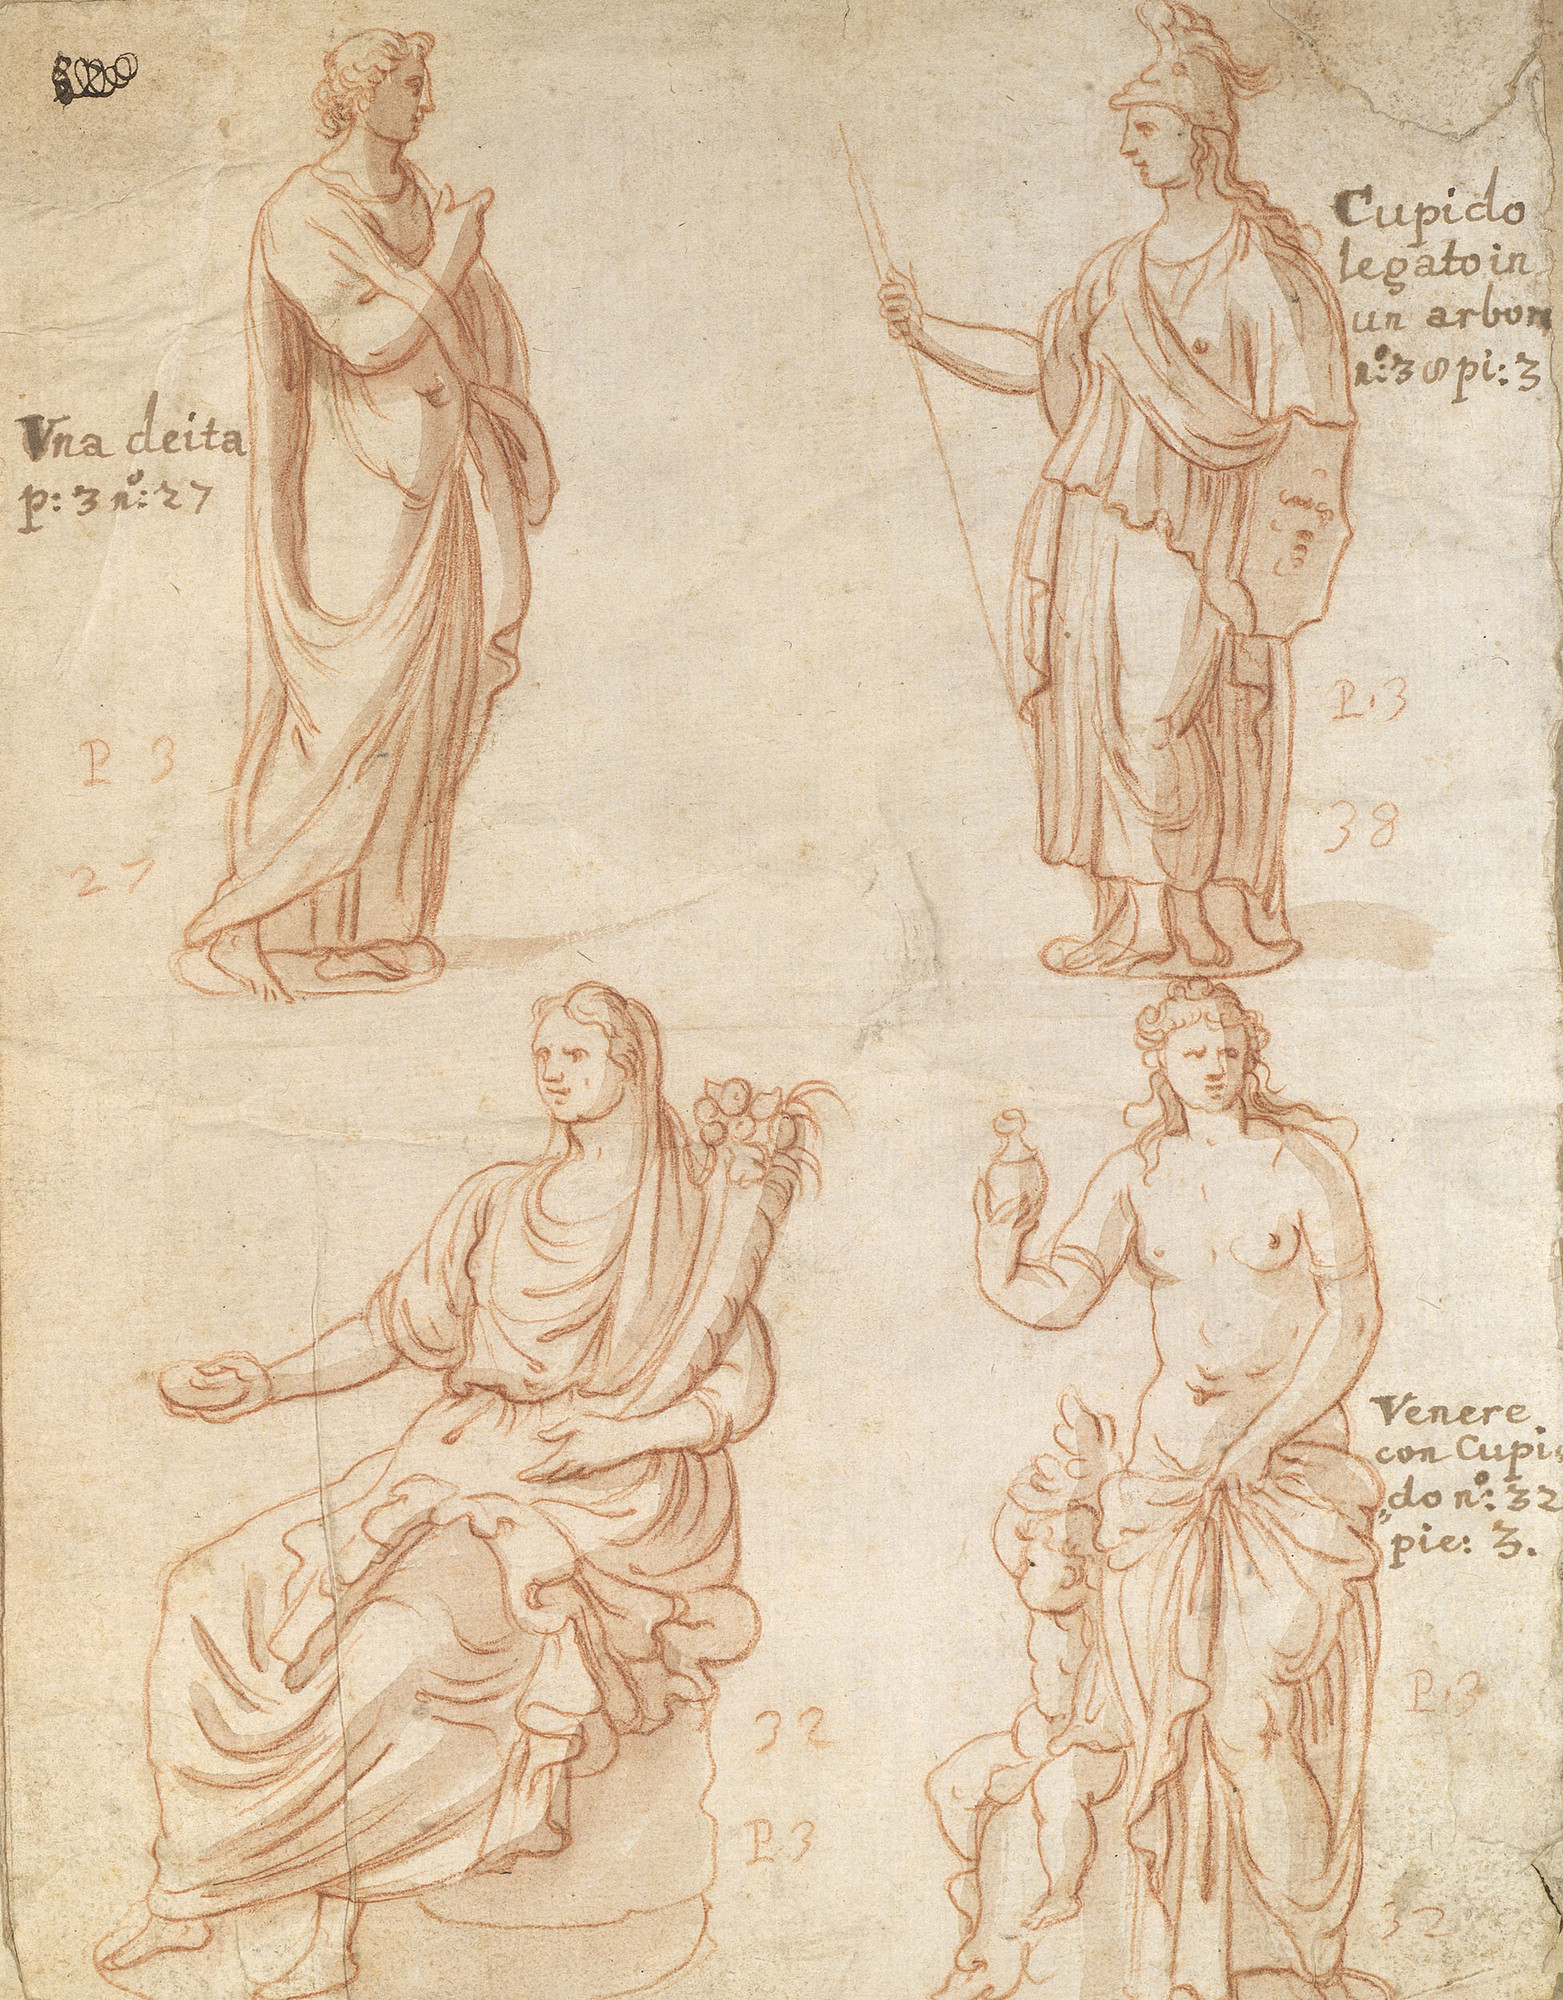 Cupido
legato in
un arbor
n:º 38 pi: 3
Vna deita
p: 3 nº: 27
P. 3
P 3
38
27
Venere
con Cupi
„do nº: 32
pie: 3.
P. 3
32
P. 3
32